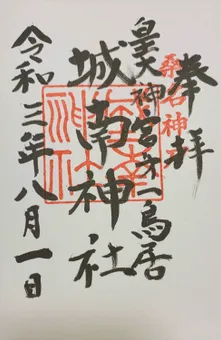 奉拝
桑名神戸
皇大神宮第一鳥居
城南神社
令和三年八月一日